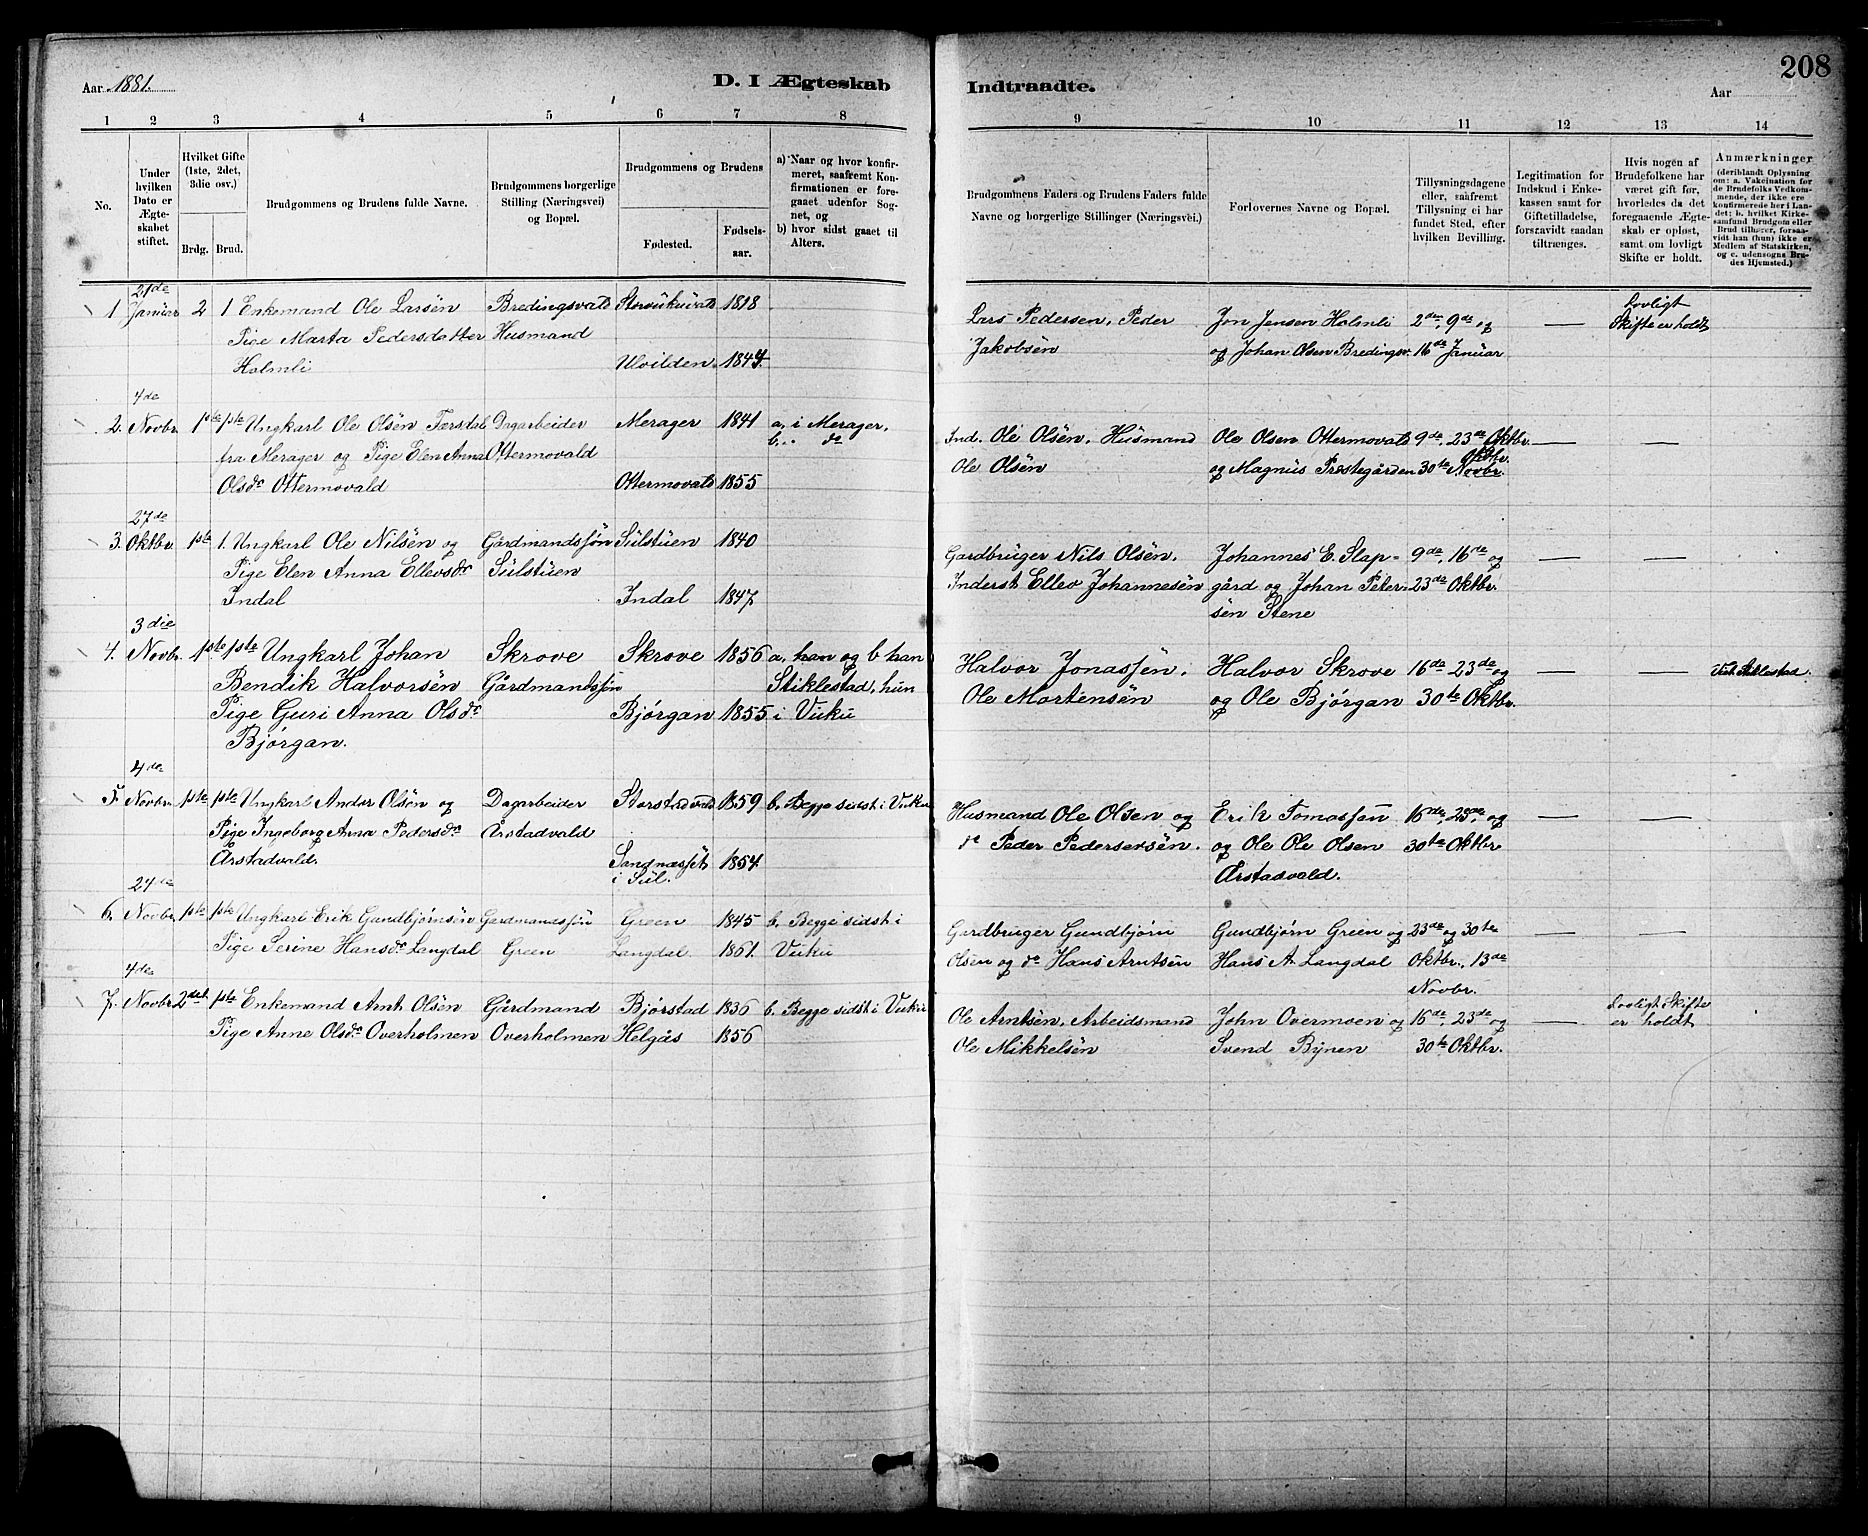 208
Aar 1881.
D. I Ægteskab
Indtraadte.
Aar
1 2 3 4 5 6 7 8
9 10 11 12 13 14
No.
Under hvilken Dato er Ægteskabet stiftet.
Hvilket Gifte (1ste, 2det, 3die osv.)
Brdg. Brud.
Brudgommens og Brudens fulde Navne.
Brudgommens borgerlige Stilling (Næringsvei) og Bopæl.
Brudgommens og Brudens
Fødested. Fødselsaar.
a) Naar og hvor konfirmeret, saafremt Konfirmationen er foregaaet udenfor Sognet, og
b) hvor sidst gaaet til Alters.
Brudgommens Faders og Brudens Faders fulde Navne og borgerlige Stillinger (Næringsvei.)
Forlovernes Navne og Bopæl.
Tillysningsdagene eller, saafremt Tillysning ei har fundet Sted, efter hvilken Bevilling.
Legitimation for Indskud i Enkekassen samt for Giftetilladelse, forsaavidt saadan tiltrænges.
Hvis nogen af Brudefolkene har været gift før, hvorledes da det foregaaende Ægteskab er opløst, samt om lovligt Skifte er holdt.
Anmærkninger (deriblandt Oplysning om: a. Vakcination for de Brudefolks Vedkommende, der ikke ere konfirmerede her i Landet; b. hvilket Kirkesamfund Brudgom eller Brud tilhører, forsaavidt han (hun) ikke er Medlem af Statskirken, og c. udensogns Brudes Hjemsted.)
21de
1 Januar 2 1 Enkemand Ole Larsen Bredingsvald 1818
Pige Marta Pedersdatter Husmand
Holmli Ulvilden 1844
Lars Pedersen, Peder Jon Jensen Holmli 2den, 9de og — Lovligt Skifte er holdt
Jakobsen og Johan Olsen Bredingsv. 16de Januar
4de
2. Novbr. 1ste 1ste Ungkarl Ole Olsen Dagarbeider Merager 1841 a, i Merager,
fra Merager og Pige Elen Anna Ottermovald b. " de
Olsdr Ottermovald Ottermovald 1855
Ind. Ole Olsen, Husmand Ole Olsen Ottermovald 9de, 23de Oktbr. — —
Ole Olsen og Magnus Prestegården 30te Novbr. Oktbr.
27de
3. Oktbr 1ste 1. Ungkarl Ole Nilsen og Gårdmandssøn Sulstuen 1840
Pige Elen Anna Ellevsdr Sulstuen
Indal Indal 1847
Gardbruger Nils Olsen. Johannes E. Slap- 9de, 16de og — —
Inderst Ellev Johannesen gård og Johan Peter- 23de Oktbr.
sen Stene
3die
4. Novbr. 1ste 1ste Ungkarl Johan Skrove Skrove 1856 a, han og b han
Bendik Halvorsen Gårdmandssøn Stiklestad, hun
Pige Guri Anna Olsdr Bjørgan 1855 i Vuku
Bjørgan.
Halvor Jonassen. Halvor Skrove 16de, 23de og — — Stiklestad.
Ole Mortensen og Ole Bjørgan 30te Oktbr.
4de
5. Novbr. 1ste 1ste Ungkarl Andor Olsen og Dagarbeider Storstadvald 1859 b. Begge sidst i Vuku
Pige Ingeborg Anna Pedersdr Årstadvald
Årstadvald. Sandnæsset i Sul. 1854
Husmand Ole Olsen og Erik Tomassen 16de, 23de, og — —
de Peder Pedersen. og Ole Ole Olsen 30te Oktbr
Årstadvald.
24de
6. Novbr 1ste 1ste Ungkarl Erik Gundbjørnsen Gardmandssøn Green 1845 b. Begge sidst i
Pige Serine Hansdr Langdal Green Langdal 1861. Vuku
Gardbruger Gundbjørn Gundbjørn Green og 23de og 30te — —
Olsen og de Hans Arntsen Hans A. Langdal Oktbr., 13de
Novbr.
4de
7. Novbr. 2det 1ste Enkemand Arnt Olsen Gårdmand Bjørstad 1836 b. Begge sidst i Vuku
Pige Anne Olsdr Overholmen Overholmen Helgås 1856
Ole Arntsen, Arbeidsmand John Overmoen og 16de, 23de og — Lovligt Skifte er holdt
Ole Mikkelsen Svend Bynen 30te Oktbr.